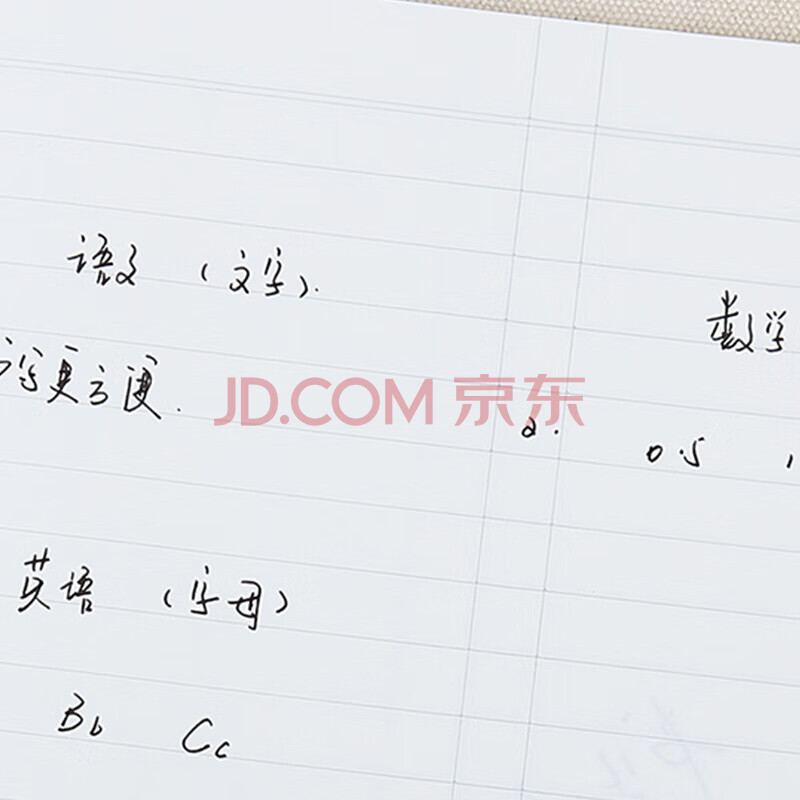 语文 (文字).
字更方便.
JD.COM 京东
英语 (字母)
Bb Cc
数学
2.
0.5 1